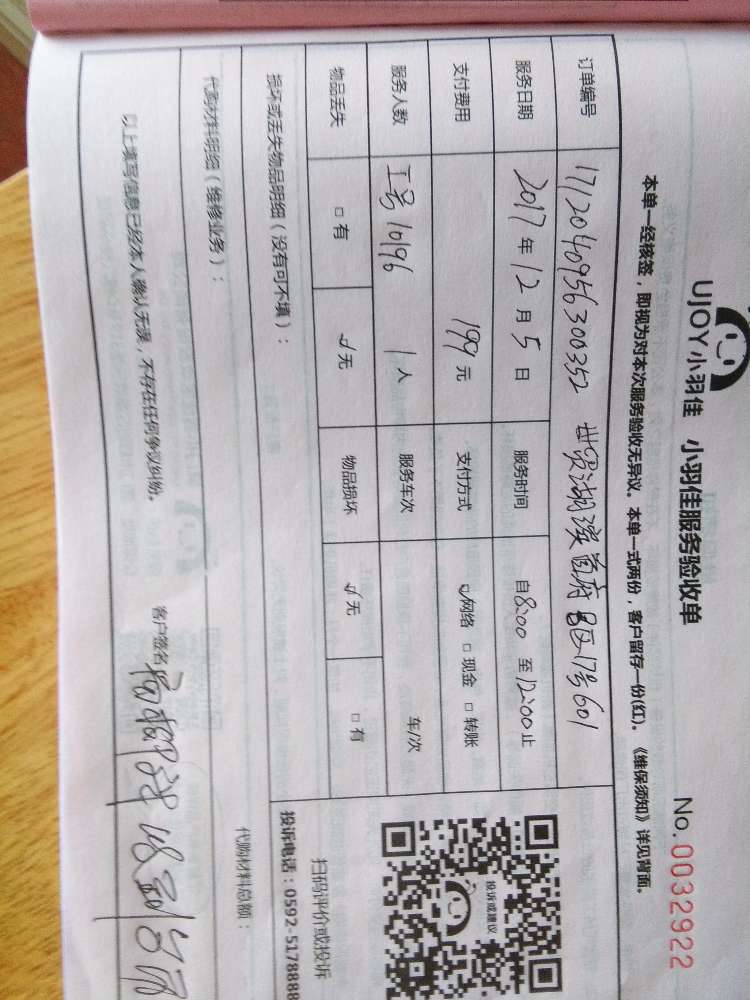 UJOY小羽佳 小羽佳服务验收单 No.0032922
本单一经核签，即视为对本次服务验收无异议。本单一式两份，客户留存一份(红)。《维保须知》详见背面。
订单编号 1712040956300352 世贸湖滨首府B区17号601
服务日期 2017年12月5日 服务时间 自8:00 至12:00止
支付费用 199元 支付方式 ☑网络 □现金 □转账
服务人数 工号10196 1人 服务车次 车/次
物品丢失 □有 ☑无 物品损坏 ☑无 □有
损坏或丢失物品明细（没有可不填）：
投诉或建议
扫码评价或投诉
投诉电话：0592-5178888
代购材料明细（维修业务）： 代购材料总额：
以上填写信息已经本人确认无误，不存在任何争议纠纷。 客户签名